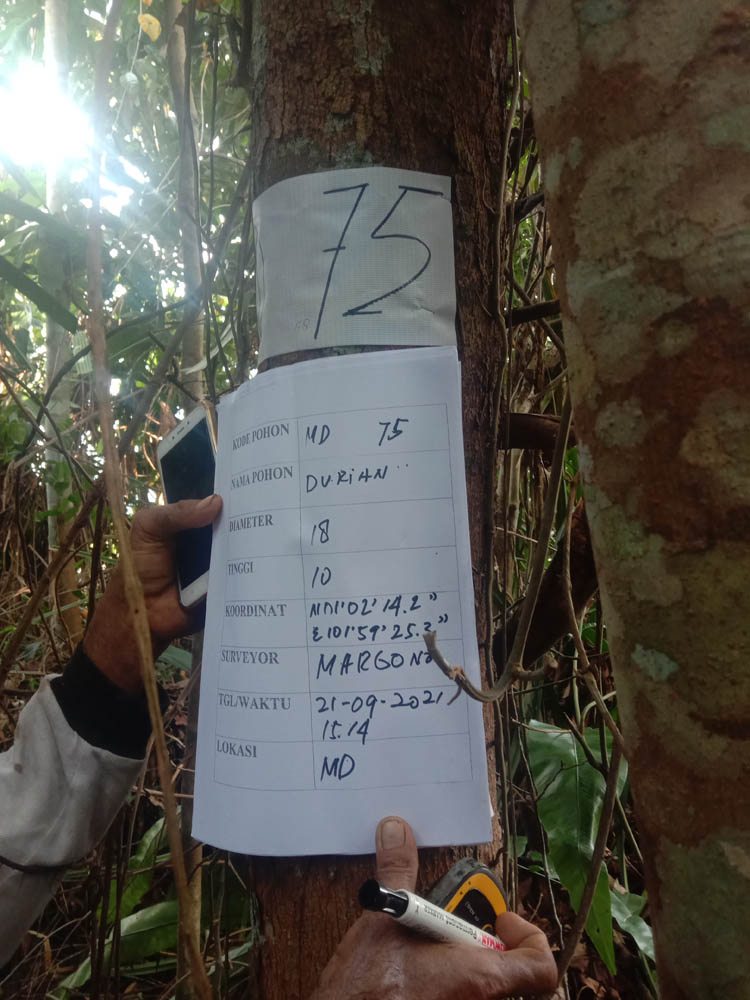 75
KODE POHON MD 75
NAMA POHON DURIAN
DIAMETER 18
TINGGI 10
KOORDINAT N01'02'14.2"
E101'59'25.3"
SURVEYOR MARGONO
TGL/WAKTU 21-09-2021
15.14
LOKASI MD
Permanent MARKER